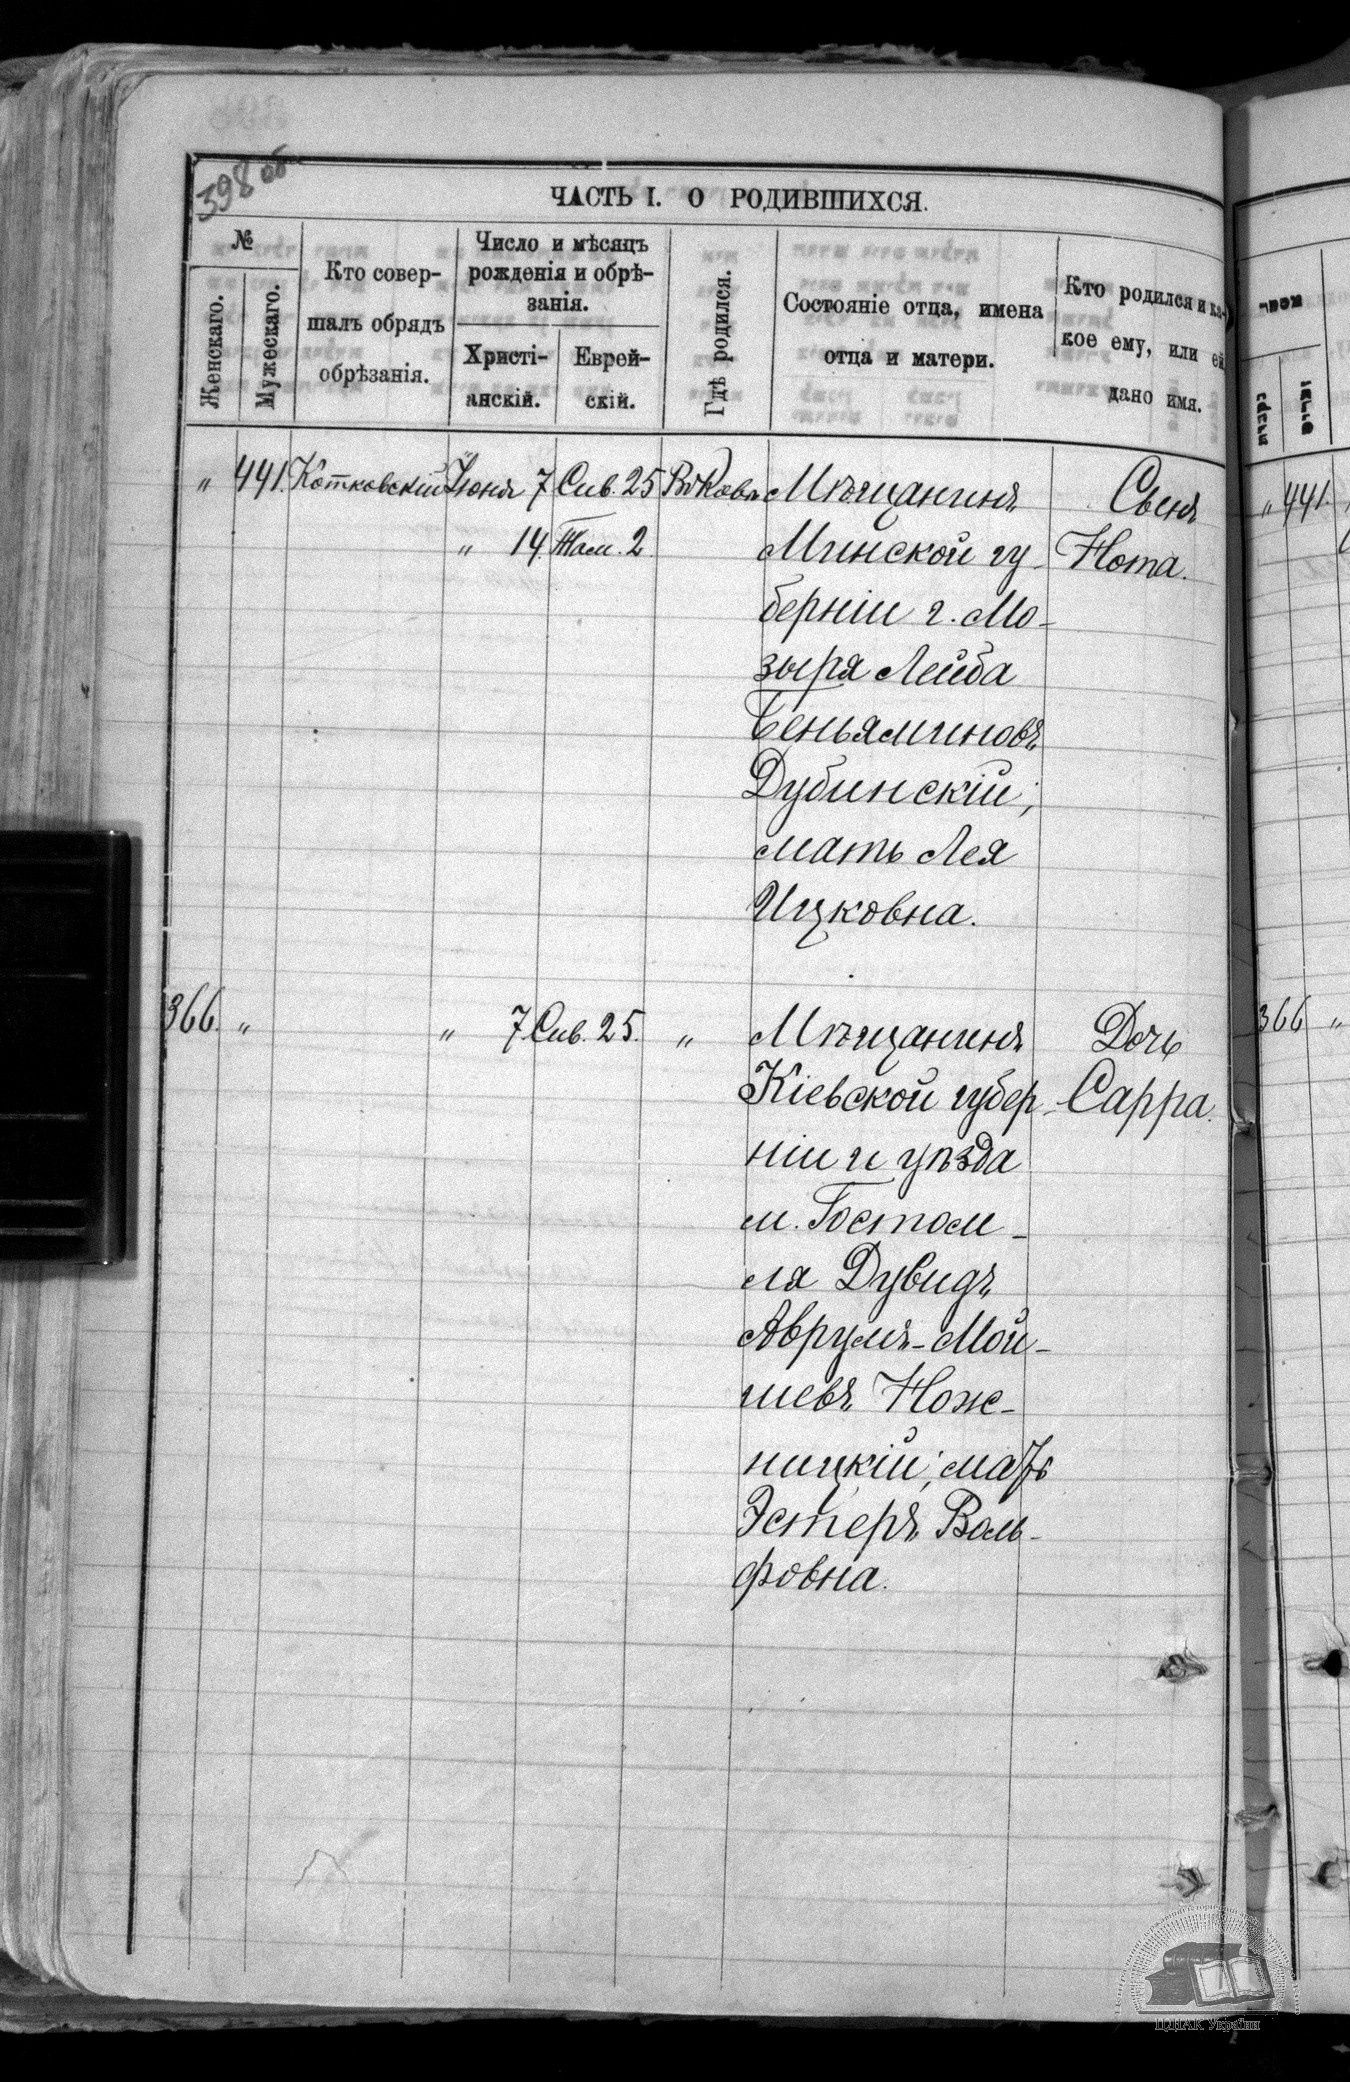 398 об
ЧАСТЬ I. О РОДИВШИХСЯ.
№
Женскаго.
Мужескаго.
Кто совер-
шалъ обрядъ
обрѣзанія.
Число и мѣсяцъ
рожденія и обрѣ-
занія.
Христі-
анскій.
Еврей-
скій.
Гдѣ родился.
Состояніе отца, имена
отца и матери.
Кто родился и ка-
кое ему, или ей
дано имя.
" 441. Котковскій Іюня 7 Сив. 25 Мѣщанинъ Сынъ
" 14 Там. 2. Минской гу- Нота.
берніи г. Мо-
зыря Лейба
Беньяминовъ
Дубинскій;
мать Лея
Ицковна.
366. " " 7 Сив. 25. " Мѣщанинъ Дочь
Кіевской губер- Сарра.
ніи и уѣзда
м. Гостом-
ля Дувидъ
Аврумъ-Мой-
шевъ Нож-
ницкій; мать
Эстеръ Воль-
фовна.
" 441.
366 "
ЦДІАК України